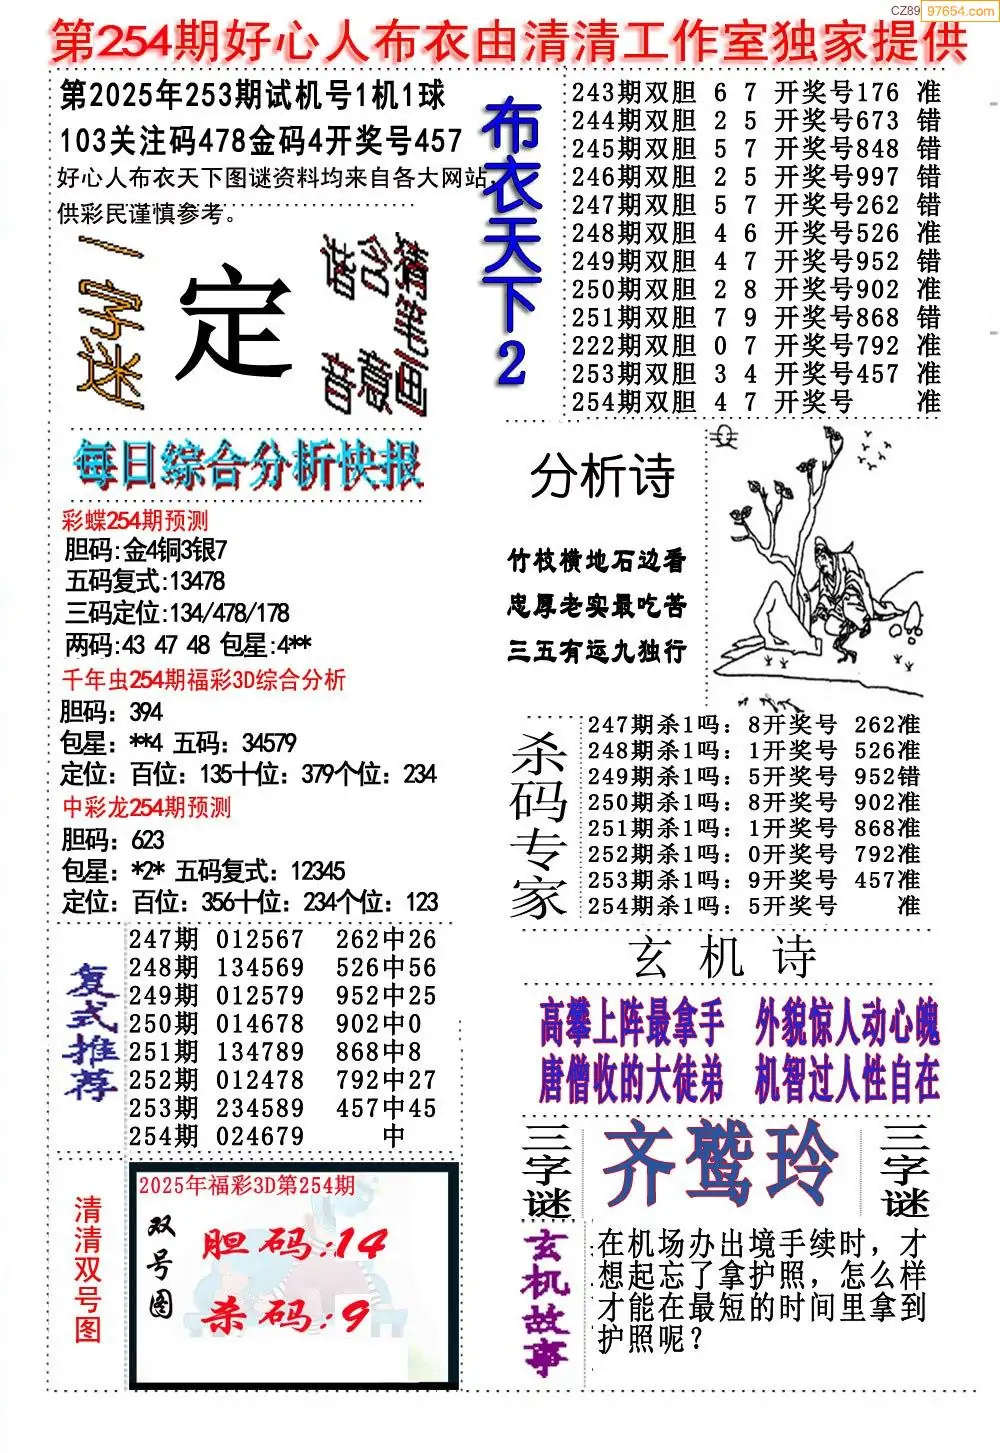 CZ89 97654.com
第254期好心人布衣由清清工作室独家提供
第2025年253期试机号1机1球
103关注码478金码4开奖号457
好心人布衣天下图谜资料均来自各大网站,
供彩民谨慎参考。
一字迷
定
猜笔画
含意
谐音
布衣天下2
243期双胆 6 7 开奖号176 准
244期双胆 2 5 开奖号673 错
245期双胆 5 7 开奖号848 错
246期双胆 2 5 开奖号997 错
247期双胆 5 7 开奖号262 错
248期双胆 4 6 开奖号526 准
249期双胆 4 7 开奖号952 错
250期双胆 2 8 开奖号902 准
251期双胆 7 9 开奖号868 错
222期双胆 0 7 开奖号792 准
253期双胆 3 4 开奖号457 准
254期双胆 4 7 开奖号 准
每日综合分析快报
彩蝶254期预测
胆码:金4铜3银7
五码复式:13478
三码定位:134/478/178
两码:43 47 48 包星:4**
千年虫254期福彩3D综合分析
胆码：394
包星：**4 五码：34579
定位：百位：135十位：379个位：234
中彩龙254期预测
胆码：623
包星：*2* 五码复式：12345
定位：百位：356十位：234个位：123
分析诗
竹枝横地石边看
忠厚老实最吃苦
三五有运九独行
杀码专家
247期杀1吗：8开奖号 262准
248期杀1吗：1开奖号 526准
249期杀1吗：5开奖号 952错
250期杀1吗：8开奖号 902准
251期杀1吗：1开奖号 868准
252期杀1吗：0开奖号 792准
253期杀1吗：9开奖号 457准
254期杀1吗：5开奖号 准
复式推荐
247期 012567 262中26
248期 134569 526中56
249期 012579 952中25
250期 014678 902中0
251期 134789 868中8
252期 012478 792中27
253期 234589 457中45
254期 024679 中
玄机诗
高攀上阵最拿手 外貌惊人动心魄
唐僧收的大徒弟 机智过人性自在
三字谜
齐鹫玲
三字谜
清清双号图
2025年福彩3D第254期
双号图
胆码:14
杀码:9
玄机故事
在机场办出境手续时，才
想起忘了拿护照，怎么样
才能在最短的时间里拿到
护照呢？